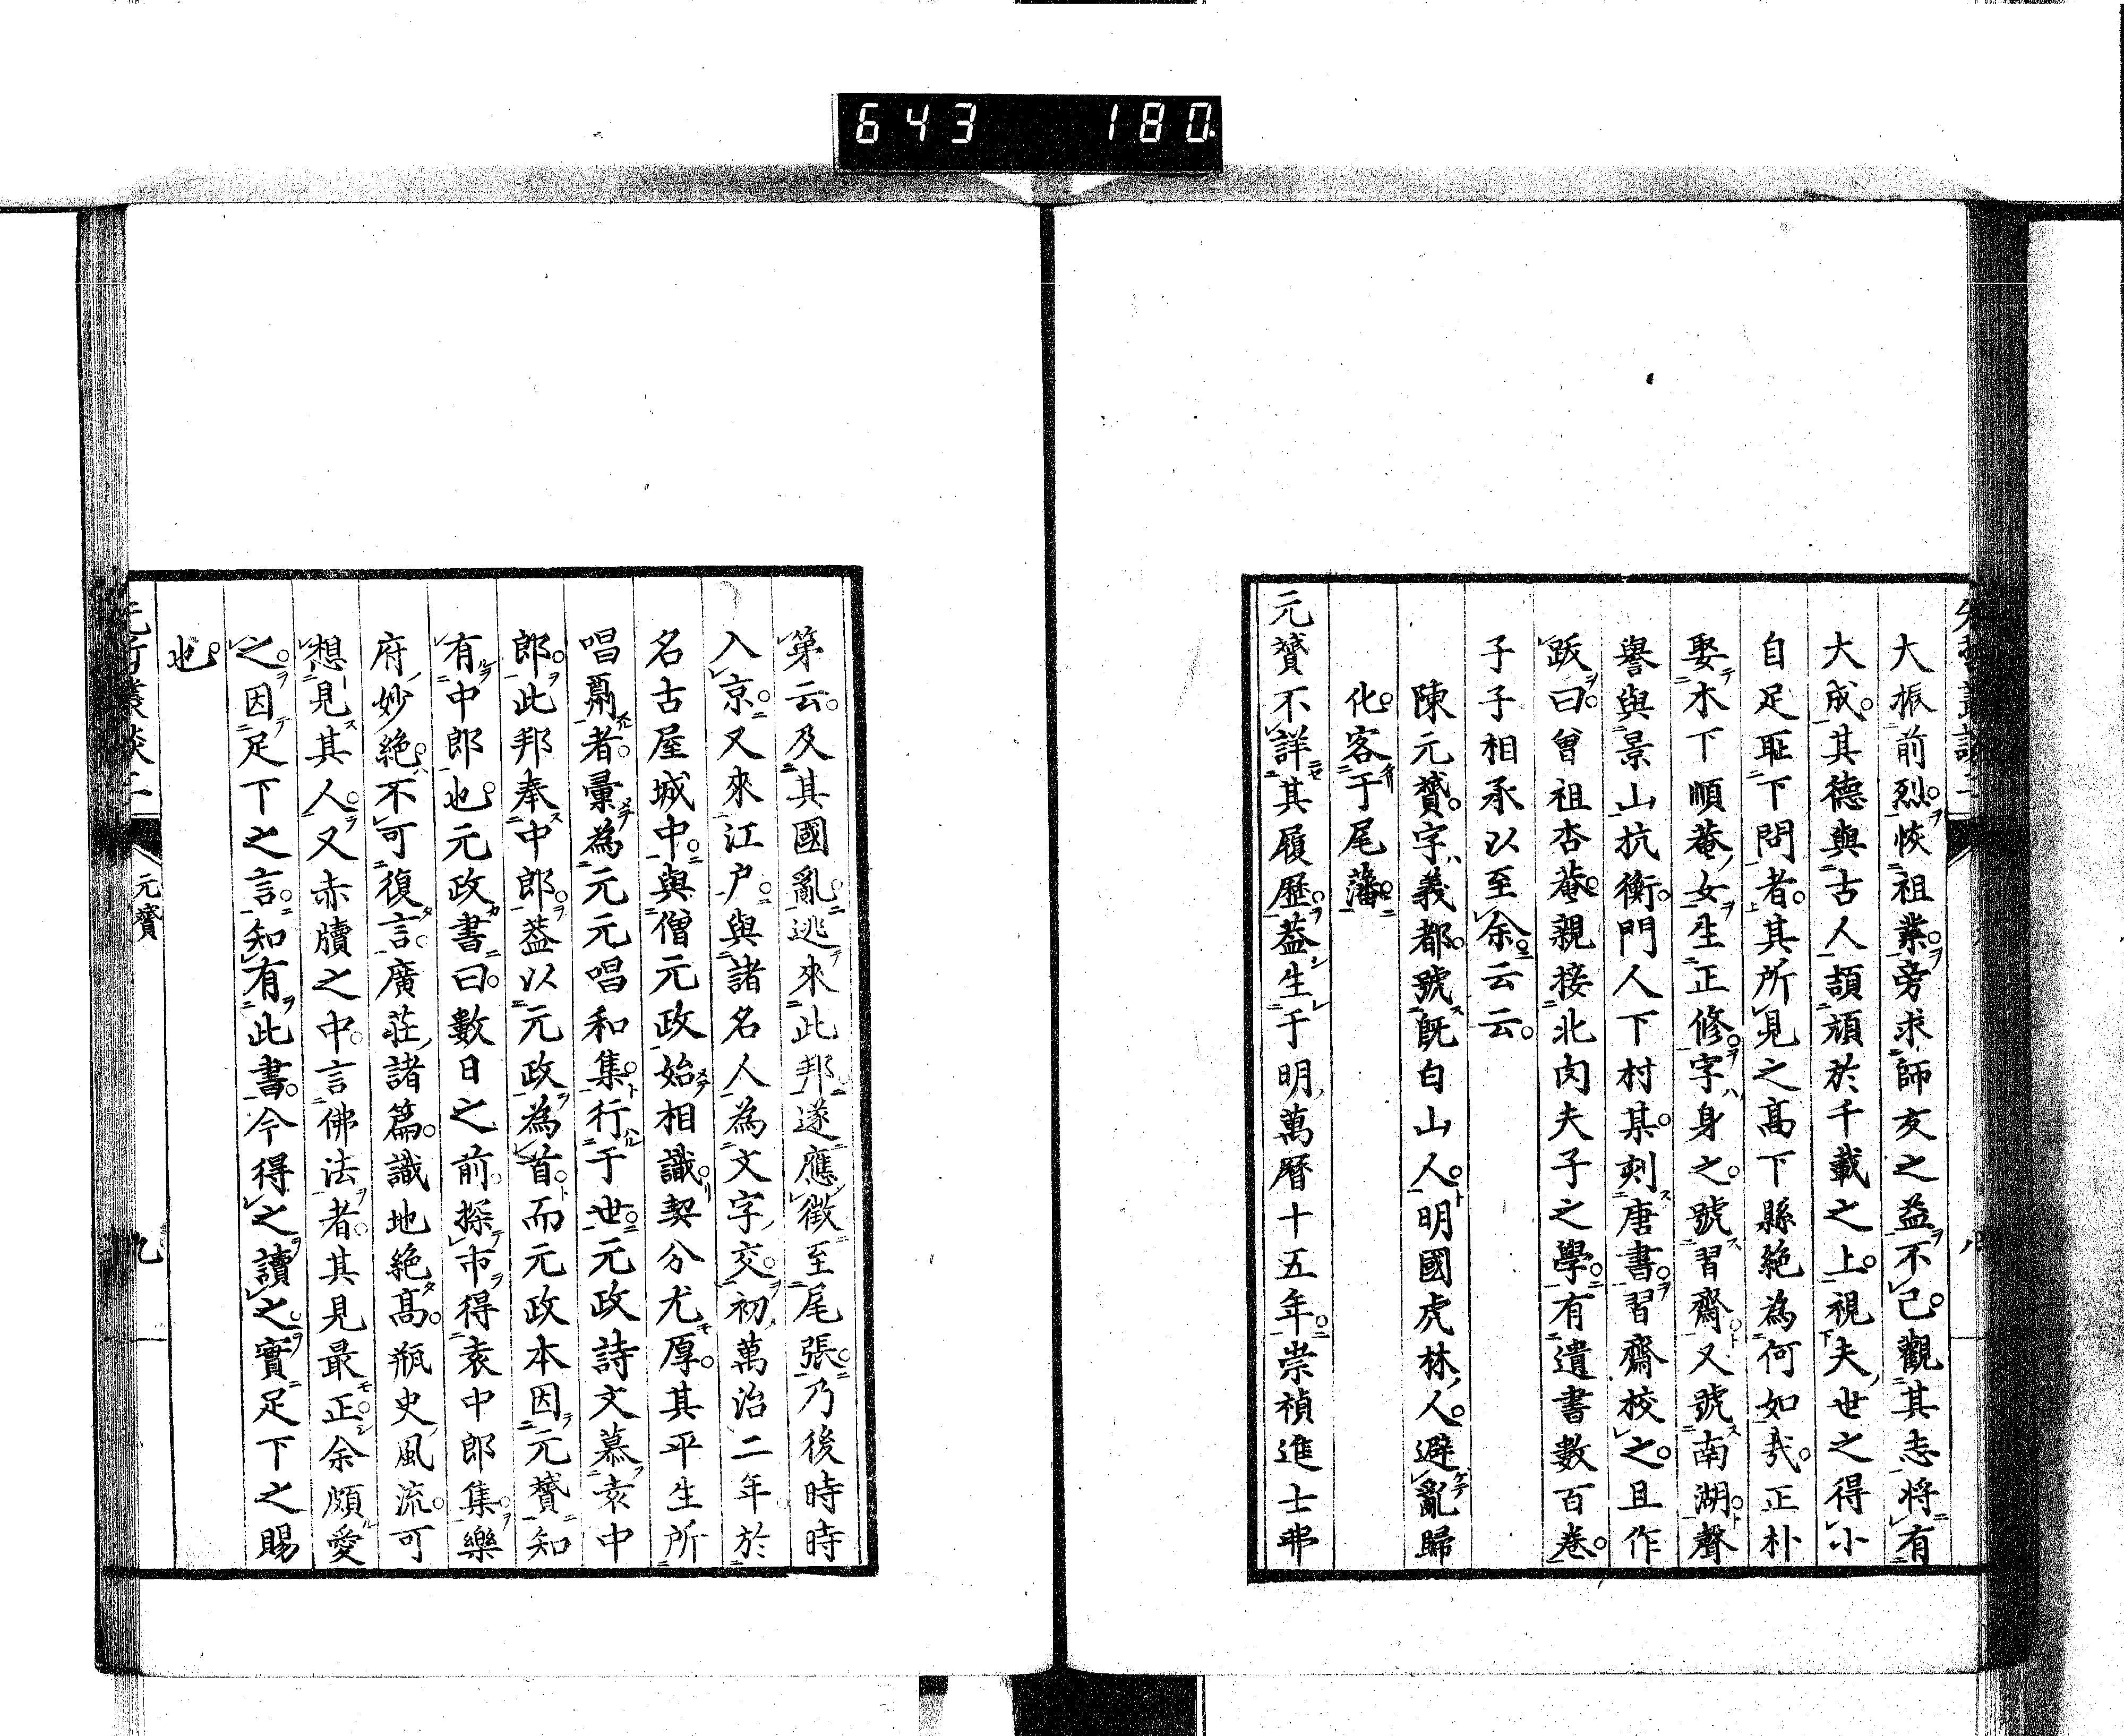 643 180
大振前烈恢祖業旁求師友之益不已觀其志將有
大成其德與古人頡頏於千載之上視夫世之得小
自足耻下問者其所見之高下縣絕為何如哉正朴
娶木下順菴女生正修字身之號習齋又號南湖聲
譽與景山抗衡門人下村某刻唐書習齋校之且作
跋曰曾祖杏菴親接北肉夫子之學有遺書數百卷
子子相承以至余云云
陳元贇字義都號既白山人明國虎林人避亂歸
化客于尾藩
元贇不詳其履歷蓋生于明萬曆十五年崇禎進士弗
第云及其國亂逃來此邦遂應徵至尾張乃後時時
入京又來江戶與諸名人為文字交初萬治二年於
名古屋城中與僧元政始相識契分尤厚其平生所
唱酬者彙為元元唱和集行于世元政詩文慕袁中
郎此邦奉中郎蓋以元政為首而元政本因元贇知
有中郎也元政書曰數日之前探市得袁中郎集樂
府妙絕不可復言廣莊諸篇識地絕高瓶史風流可
想見其人又赤牘之中言佛法者其見最正余頗愛
之因足下之言知有此書今得之讀之實足下之賜
也
元贇
九